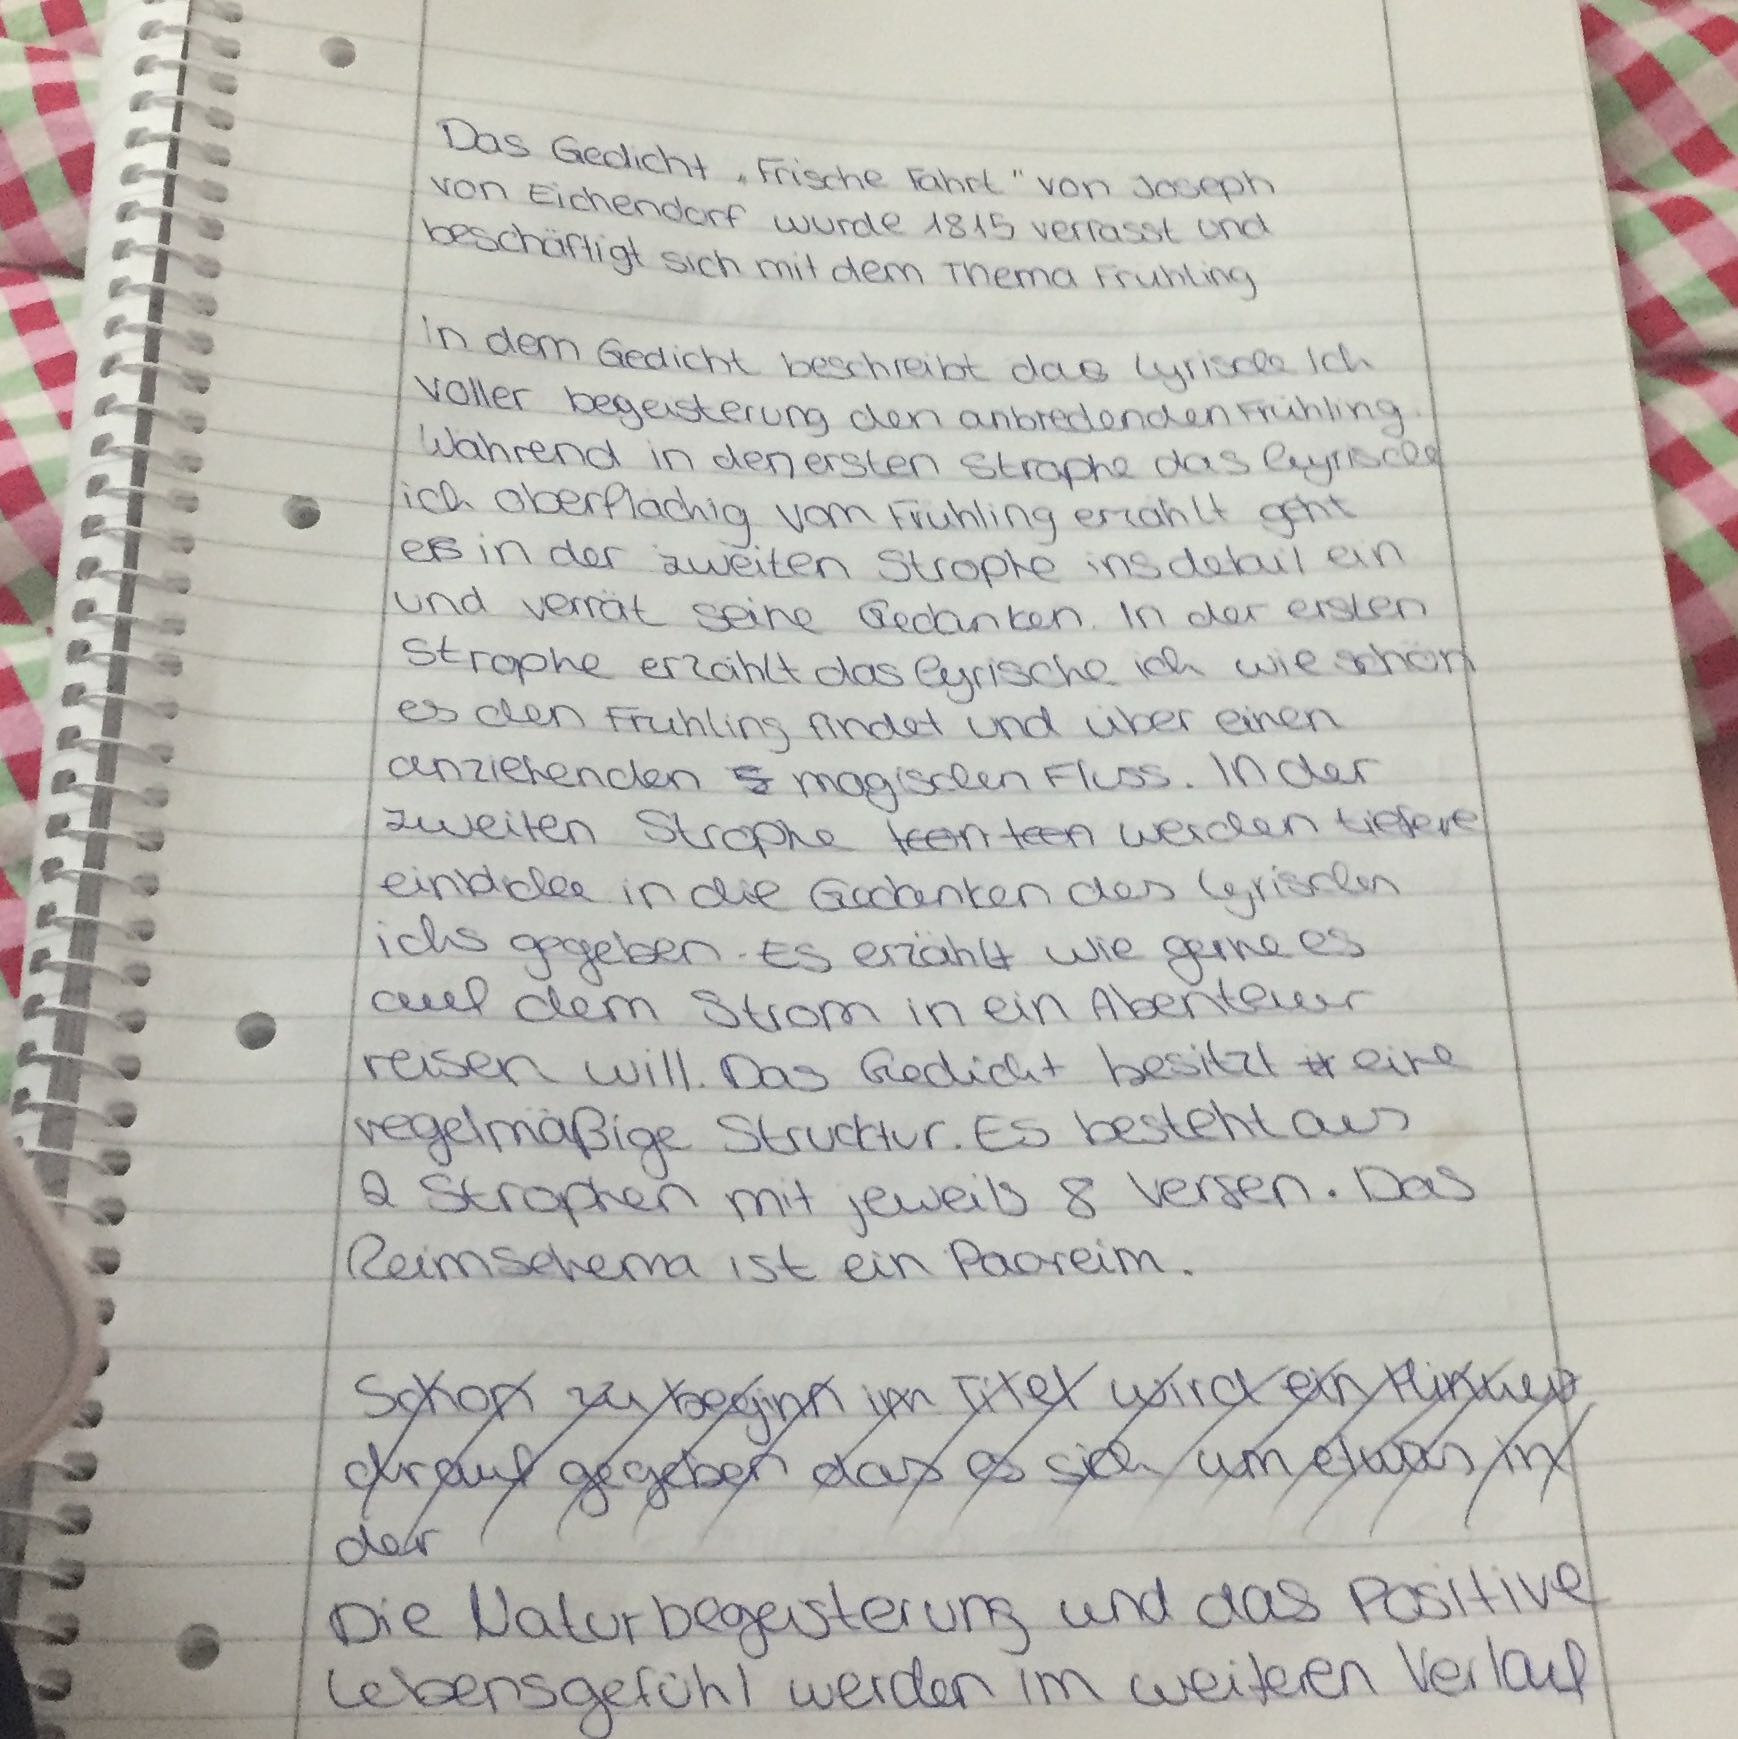 Das Gedicht „Frische Fahrt" von Joseph
von Eichendorf wurde 1815 verfasst und
beschäftigt sich mit dem Thema Frühling
In dem Gedicht beschreibt das lyrische Ich
voller begeisterung den anbredenden Frühling.
Während in den ersten Strophe das lyrische
ich oberflächig vom Frühling erzählt geht
es in der zweiten Strophe ins detail ein
und verrät seine Gedanken. In der ersten
Strophe erzählt das lyrische ich wie schön
es den Frühling findet und über einen
anziehenden magischen Fluss. In der
zweiten Strophe werden tiefere
einblicke in die Gedanken des lyrischen
ichs gegeben. Es erzählt wie gerne es
auf dem Strom in ein Abenteuer
reisen will. Das Gedicht besitzt eine
regelmäßige Strucktur. Es besteht aus
2 Strophen mit jeweils 8 Versen. Das
Reimschema ist ein Paareim.
Schon zu beginn im Titel wird ein Hinweis
drauf gegeben das es sich um etwas in
der
Die Naturbegeisterung und das Positive
Lebensgefühl werden im weiteren Verlauf